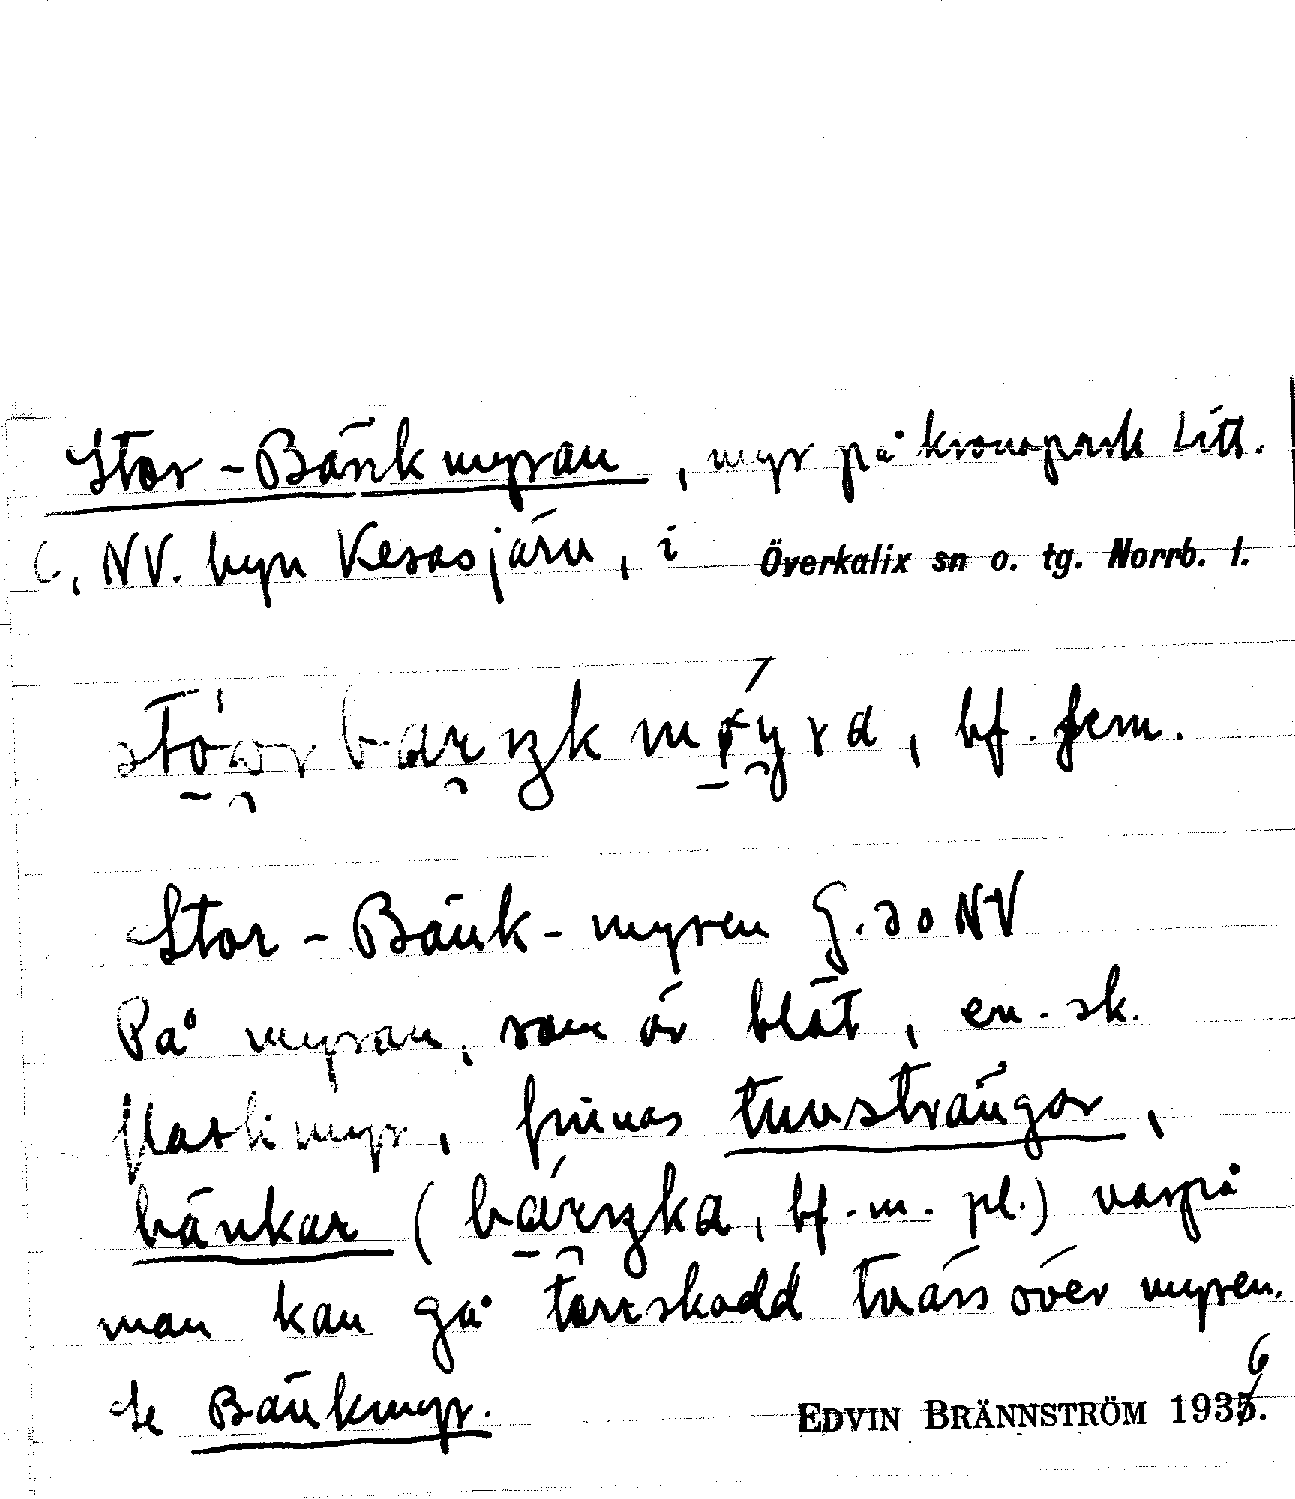 Stor-Bänkmyran, myr på kronopark Litt.
C, NV. byn Vesasjärv, i Överkalix sn o. tg. Norrb. l.
bf. fem.
Stor-Bänk-myren G. 30 NV
På myran, som är blöt, en. sk.
flarkmyr, finnas tuvsträngar,
bänkar ( bf. m. pl.) varpå
man kan gå torrskodd tvärs över myren.
Se Bänkmyr. EDVIN BRÄNNSTRÖM 1936.